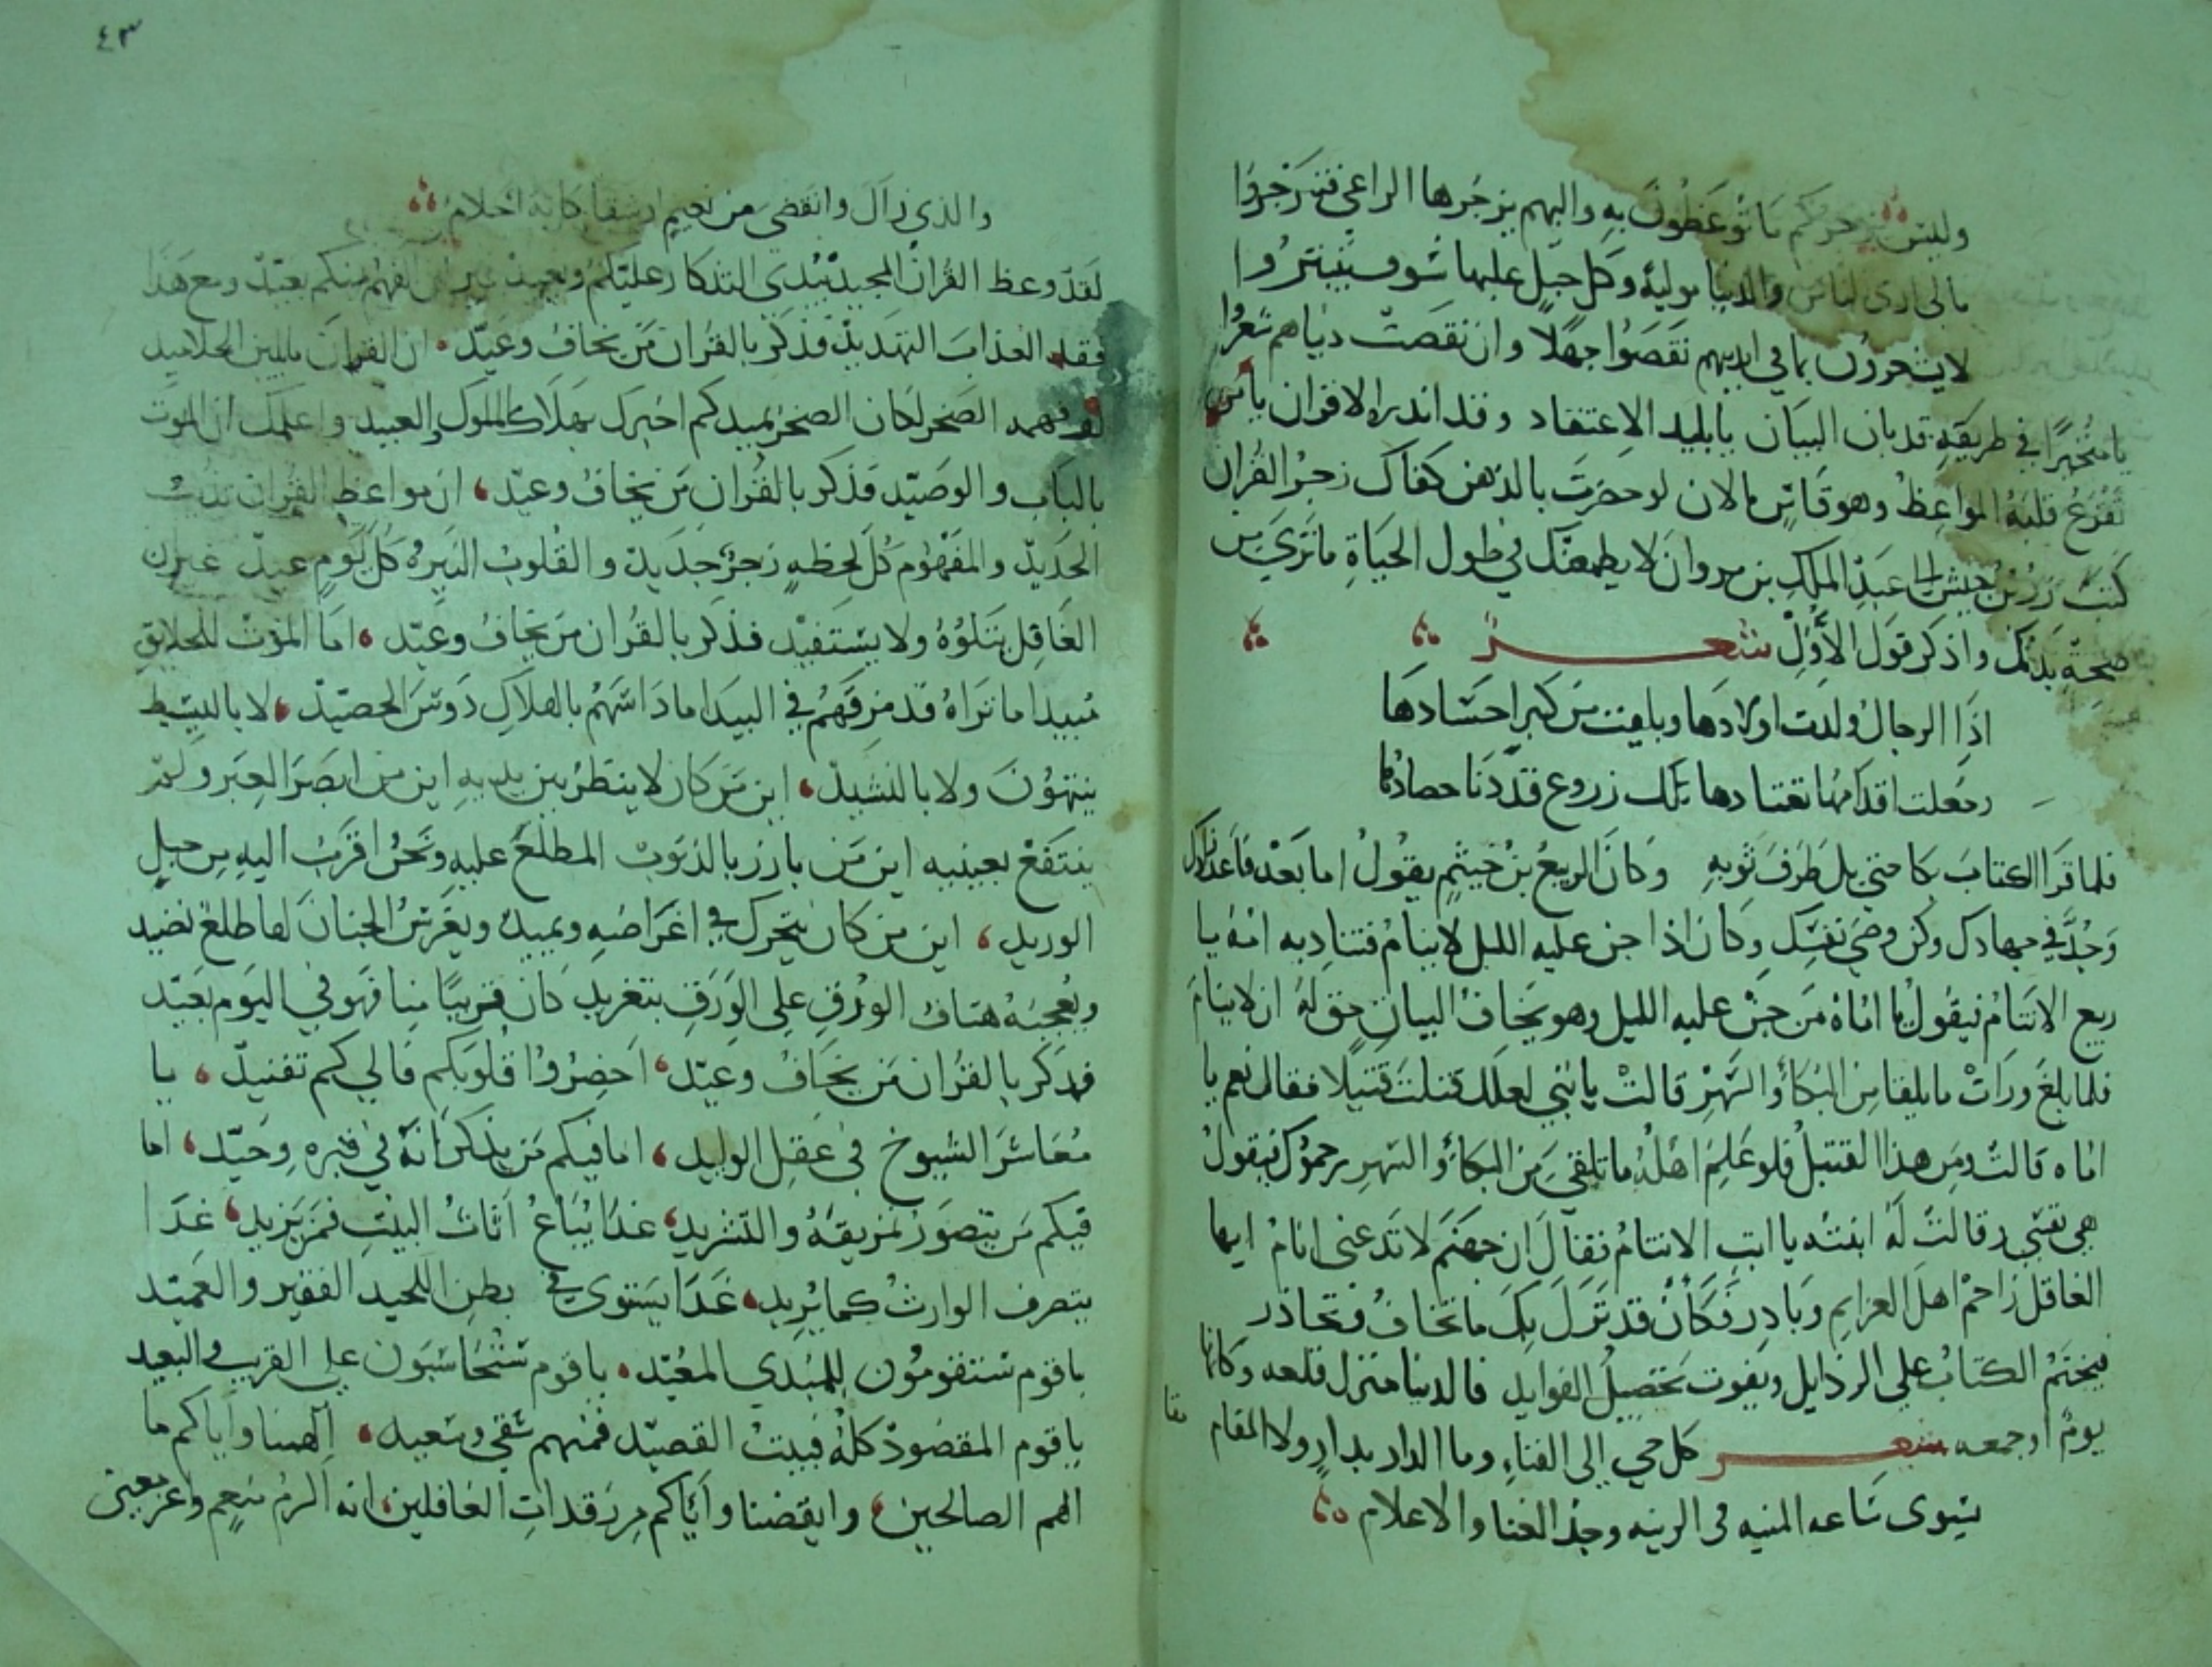 وليس يزجركم ما توعظون به والبهم يزجرها الراعي فتنزجروا
مالي ارى الناس والدنيا مولية وكل حبل عليها سوف ينبتروا
لا يشعرون بما في ايديهم نقصوا جهلا وان نقصت دنياهم شعروا
يا متحيرا في طريقه قد بان البيان يا بليد الاعتقاد وقد انذره الاقران يا من
تقرع قلبه المواعظ وهو قاس ما لان لو حضرت بالذهن كفاك زجر القران
كتب زر بن حبيش الى عبد الملك بن مروان لا يطمعنك في طول الحياة ما ترى من
صحة بدنك واذكر قول الاول شعر
اذا الرجال ولدت اولادها وبليت من كبر احشادها
وجعلت اقدامها تعتادها تلك زروع قد دنا حصادها
فلما قرا الكتاب بكا حتى بل طرف ثوبه وكان الربيع بن خيثم يقول اما بعد فاعد زادك
وجد في جهادك وكن وصي نفسك وكان اذا جن عليه الليل لا ينام فتناديه امه يا
ربيع الا تنام فيقول يا اماه من جن عليه الليل وهو يخاف البيات حق له ان لا ينام
فلما بلغ ورات ما يلقا من البكا والسهر قالت يا بني لعلك قتلت قتيلا فقال نعم يا
اماه قالت ومن هذا القتيل فلو علم اهله ما تلقى من البكا والسهر يرحموك فيقول
هي نفسي وقالت له ابنته يا ابت الا تنام فقال ان جهنم لا تدعني انام ايها
الغافل زاحم اهل العزايم وبادر فكان قد نزل بك ما تخاف وتحاذر
فيختم الكتاب على الرذايل ويفوت تحصيل الفوايد فالدنيا منزل قلعه وكانها
يوم او جمعه شعر كل حي الى الفناء وما الدار بدار ولا المقام مقا
يستوى ساعه المنيه في الرتبه وجد الغنا والاعدام
٤٣
والذي زال وانقضى من نعيم او شقا كانه احلام
لقد وعظ القران المجيد يبدي التذكار عليكم ويعيد غير ان الفهم منكم بعيد ومع هذا
فقد العذاب التهديد فذكر بالقران من يخاف وعيد ان القران يلين الجلاميد
لو فهمه الصخر لكان الصخر يميد كم اخبرك بهلاك الملوك والعبيد واعلمك ان الموت
بالباب والوصيد فذكر بالقران من يخاف وعيد ان مواعظ القران تذيب
الحديد وللفهوم كل لحظه زجر جديد والقلوب النيره كل يوم عيد غير ان
الغافل يتلوه ولا يستفيد فذكر بالقران من يخاف وعيد اما الموت للخلايق
مبيد اما تراه قد مزقهم في البيد اما داسهم بالهلاك دوس الحصيد لا بالبسيط
ينتهون ولا بالنشيد اين من كان لا ينظر بين يديه اين من ابصر العبر ولم
ينتفع بعينيه اين من بارز بالذنوب المطلع عليه ونحن اقرب اليه من حبل
الوريد اين من كان يتحرك في اغراضه ويميد ويغرس الجنان لها طلع نضيد
ويعجبه هتاف الورق على الورق بتغريد كان قريبا منا فهو في اليوم بعيد
فذكر بالقران من يخاف وعيد احضروا قلوبكم فالى كم تفنيد يا
معاشر الشيوخ في عقل الوليد اما فيكم من يذكر انه في قبره وحيد اما
فيكم من يتصور تمزيقه والتشريد غدا يباع اثاث البيت فمن يزيد غدا
يتصرف الوارث كما يريد غدا يستوى في بطن اللحيد الفقير والعميد
يا قوم ستقومون للمبدي المعيد يا قوم ستحاسبون على القريب والبعيد
يا قوم المقصود كله فبيت القصيد فمنهم شقي وسعيد الهمنا واياكم ما
الهم الصالحين وايقضنا واياكم من رقدات الغافلين انه اكرم منعم واعز معين